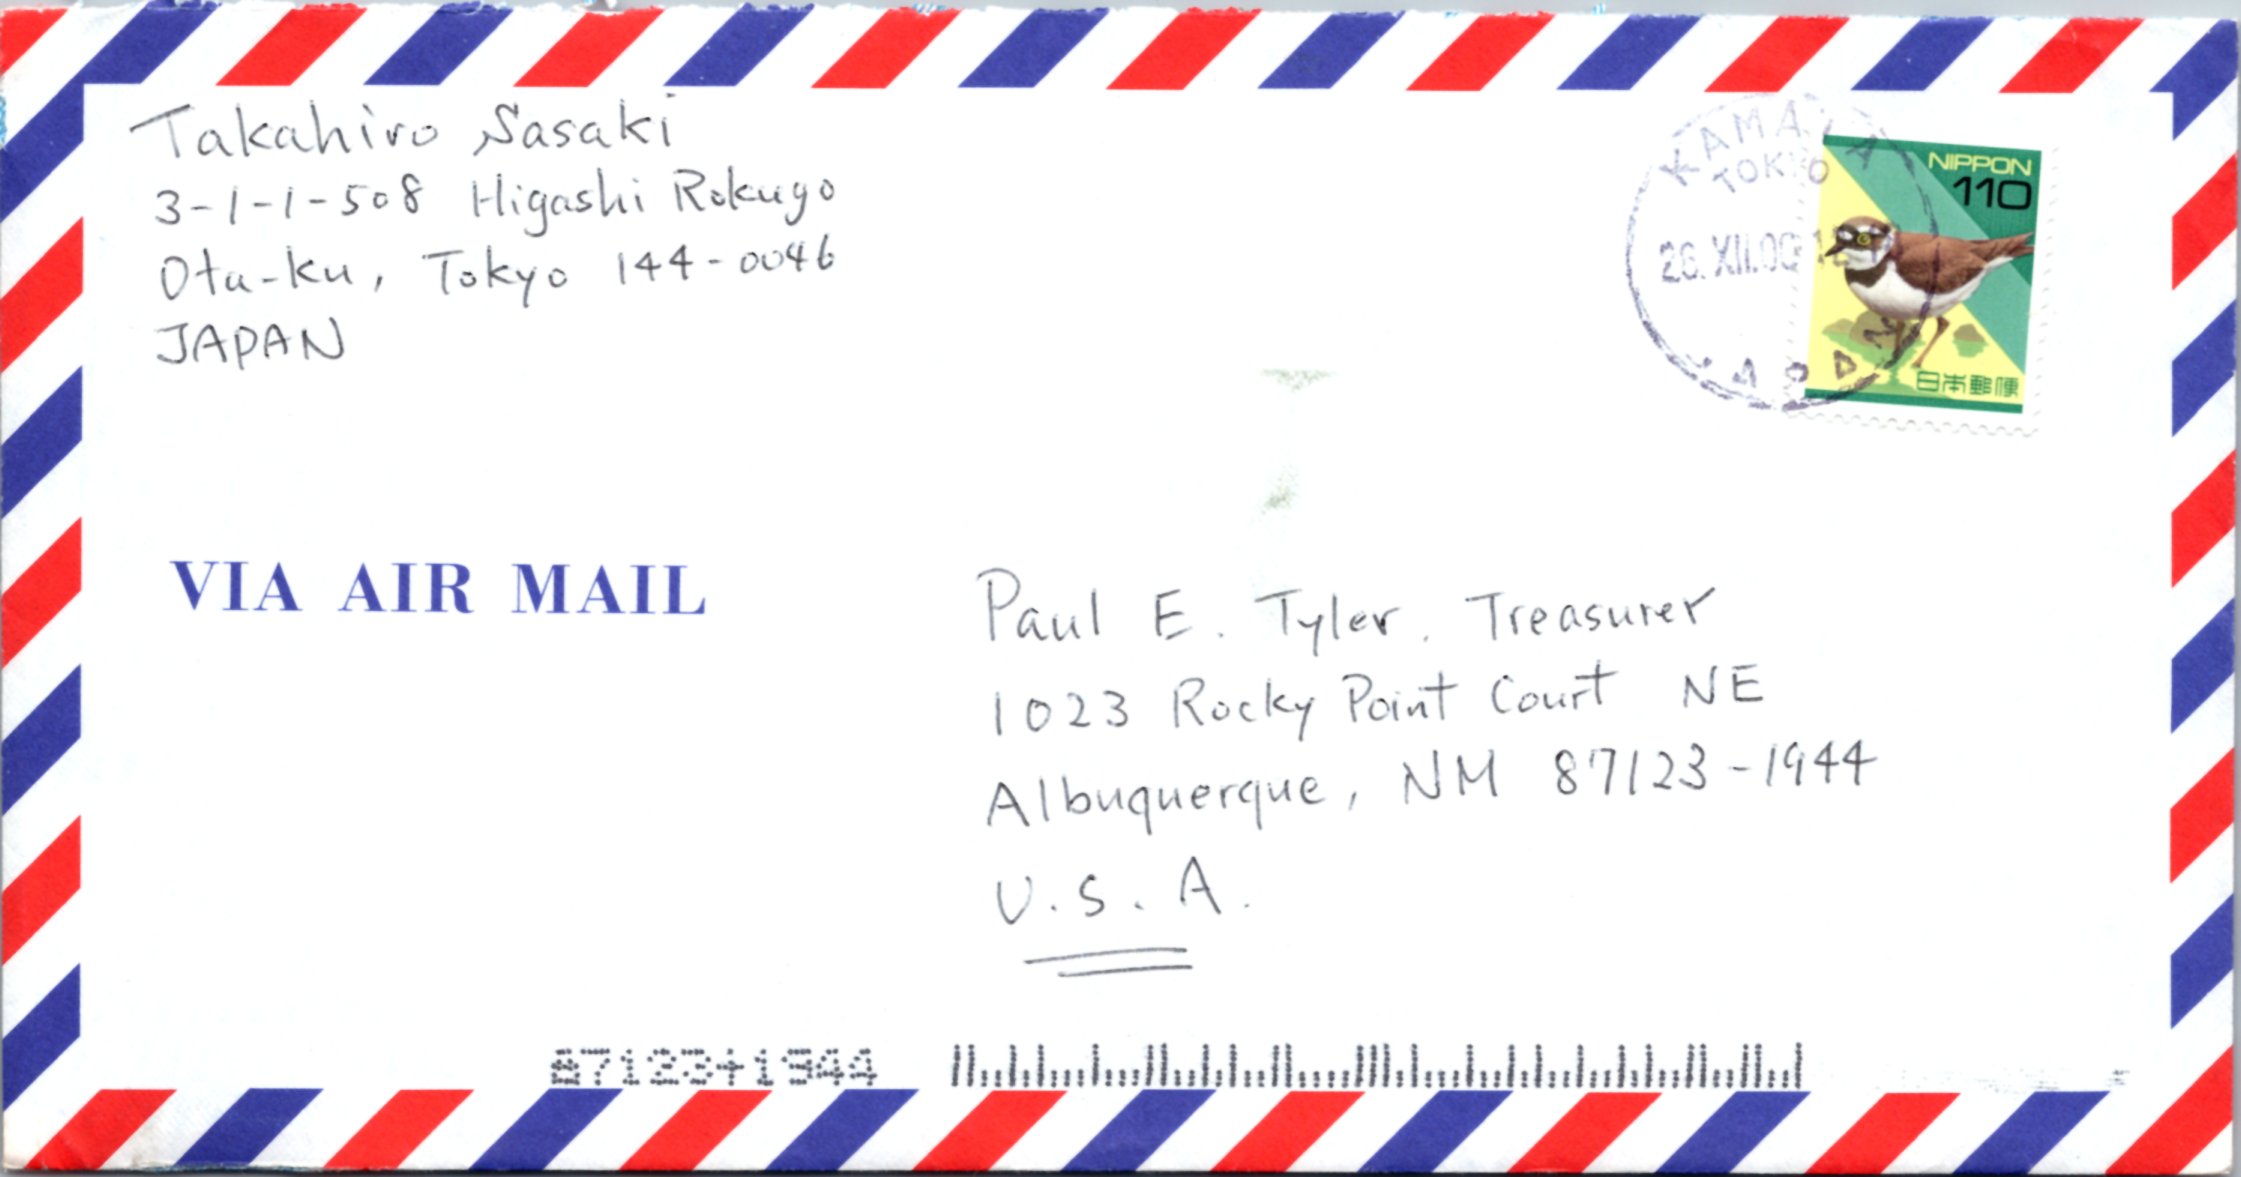 Takahiro Sasaki
3-1-1-508 Higashi Rokugo
Ota-ku, Tokyo 144-0046
JAPAN
KAMATA
TOKYO
26.XII.00
JAPAN
NIPPON
110
日本郵便
VIA AIR MAIL
Paul E. Tyler, Treasurer
1023 Rocky Point Court NE
Albuquerque, NM 87123-1944
U.S.A.
87123+1944